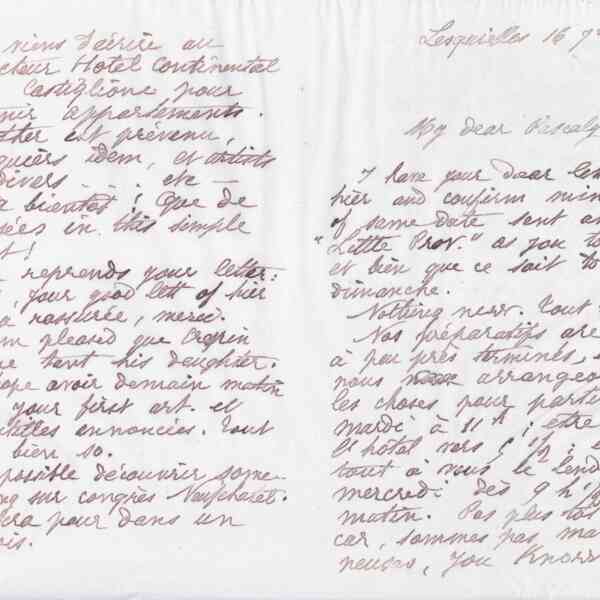 viens d'écrire au
cteur Hotel Continental
Castiglione pour
enir appartements.
ther est prévenu,
quiers idem, et artists
divers . . . etc —
à bientôt! Que de
sées in this simple
t!
reprends your letter:
, your good lett of hier
a rassurée, merci.
am pleased que Crépin
me tant his daughter.
ope avoir demain matin
your first art. et
annoncées. Tout
bien so.
possible découvrir some-
ng sur congrès Neufchatel.
ra pour dans un
is.
Lesquielles 16 7
My dear
I have your dear let
hier and confirm min
of same date sent an
"Little Prov." as you to
et bien que ce soit to
dimanche.
Nothing new. Tout
Nos préparatifs are
à peu près terminés,
nous arrangeo
les choses pour parti
mardi à 11h; etre
l'hôtel vers
tout à vous le lend
mercredi dès 9 h
matin. Pas plus to
car, sommes pas ma
neuses, you know